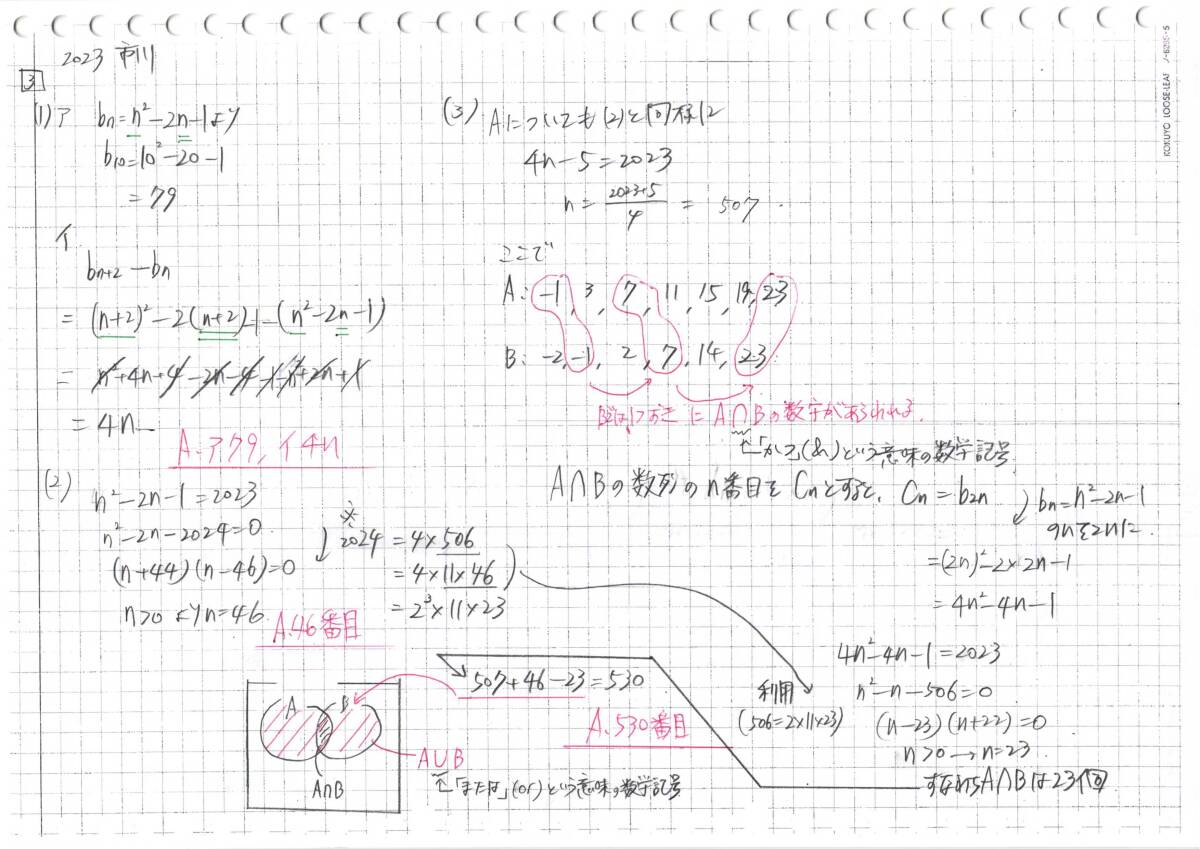 2023 市川
3
(1) ア bn=n²-2n-1より
b10=10²-20-1
=79
イ
bn+2-bn
=(n+2)²-2(n+2)-1-(n²-2n-1)
=n²+4n+4-2n-4-1-n²+2n+1
=4n
A. ア79, イ4n
(2) n²-2n-1=2023
n²-2n-2024=0
(n+44)(n-46)=0
n>0よりn=46
A.46番目
※
2024=4×506
=4×11×46
=2³×11×23
A B
A∩B
A∪B
↑「または」(or)という意味の数学記号
507+46-23=530
A.530番目
(3) Aについても(2)と同様に
4n-5=2023
n=(2023+5)/4=507.
ここで
A: -1, 3, 7, 11, 15, 19, 23
B: -2, -1, 2, 7, 14, 23
Bでは1つおきにA∩Bの数字があらわれる.
↑「かつ」(&)という意味の数学記号
A∩Bの数列のn番目をCnとすると、Cn=b2n
bn=n²-2n-1
のnを2nに.
=(2n)²-2×2n-1
=4n²-4n-1
4n²-4n-1=2023
利用
(506=2×11×23)
n²-n-506=0
(n-23)(n+22)=0
n>0→n=23.
すなわちA∩Bは23個
KOKUYO LOOSE-LEAF